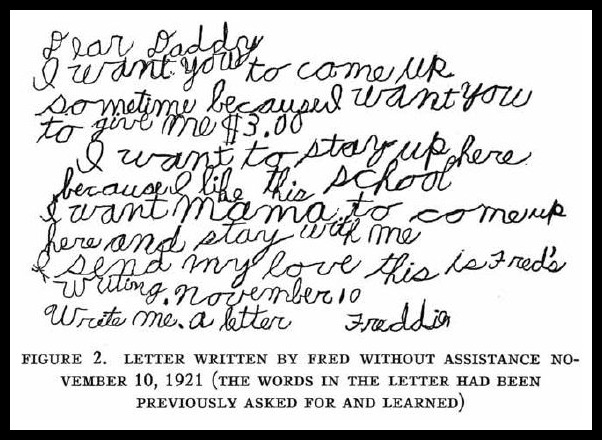 Dear Daddy
I want you to come up
sometime because I want you
to give me $3.00
I want to stay up here
because I like this school
I want Mama to come up
here and stay with me
I send my love this is Fred's
writing. november 10
Write me. a letter Freddie
FIGURE 2. LETTER WRITTEN BY FRED WITHOUT ASSISTANCE NO-
VEMBER 10, 1921 (THE WORDS IN THE LETTER HAD BEEN
PREVIOUSLY ASKED FOR AND LEARNED)